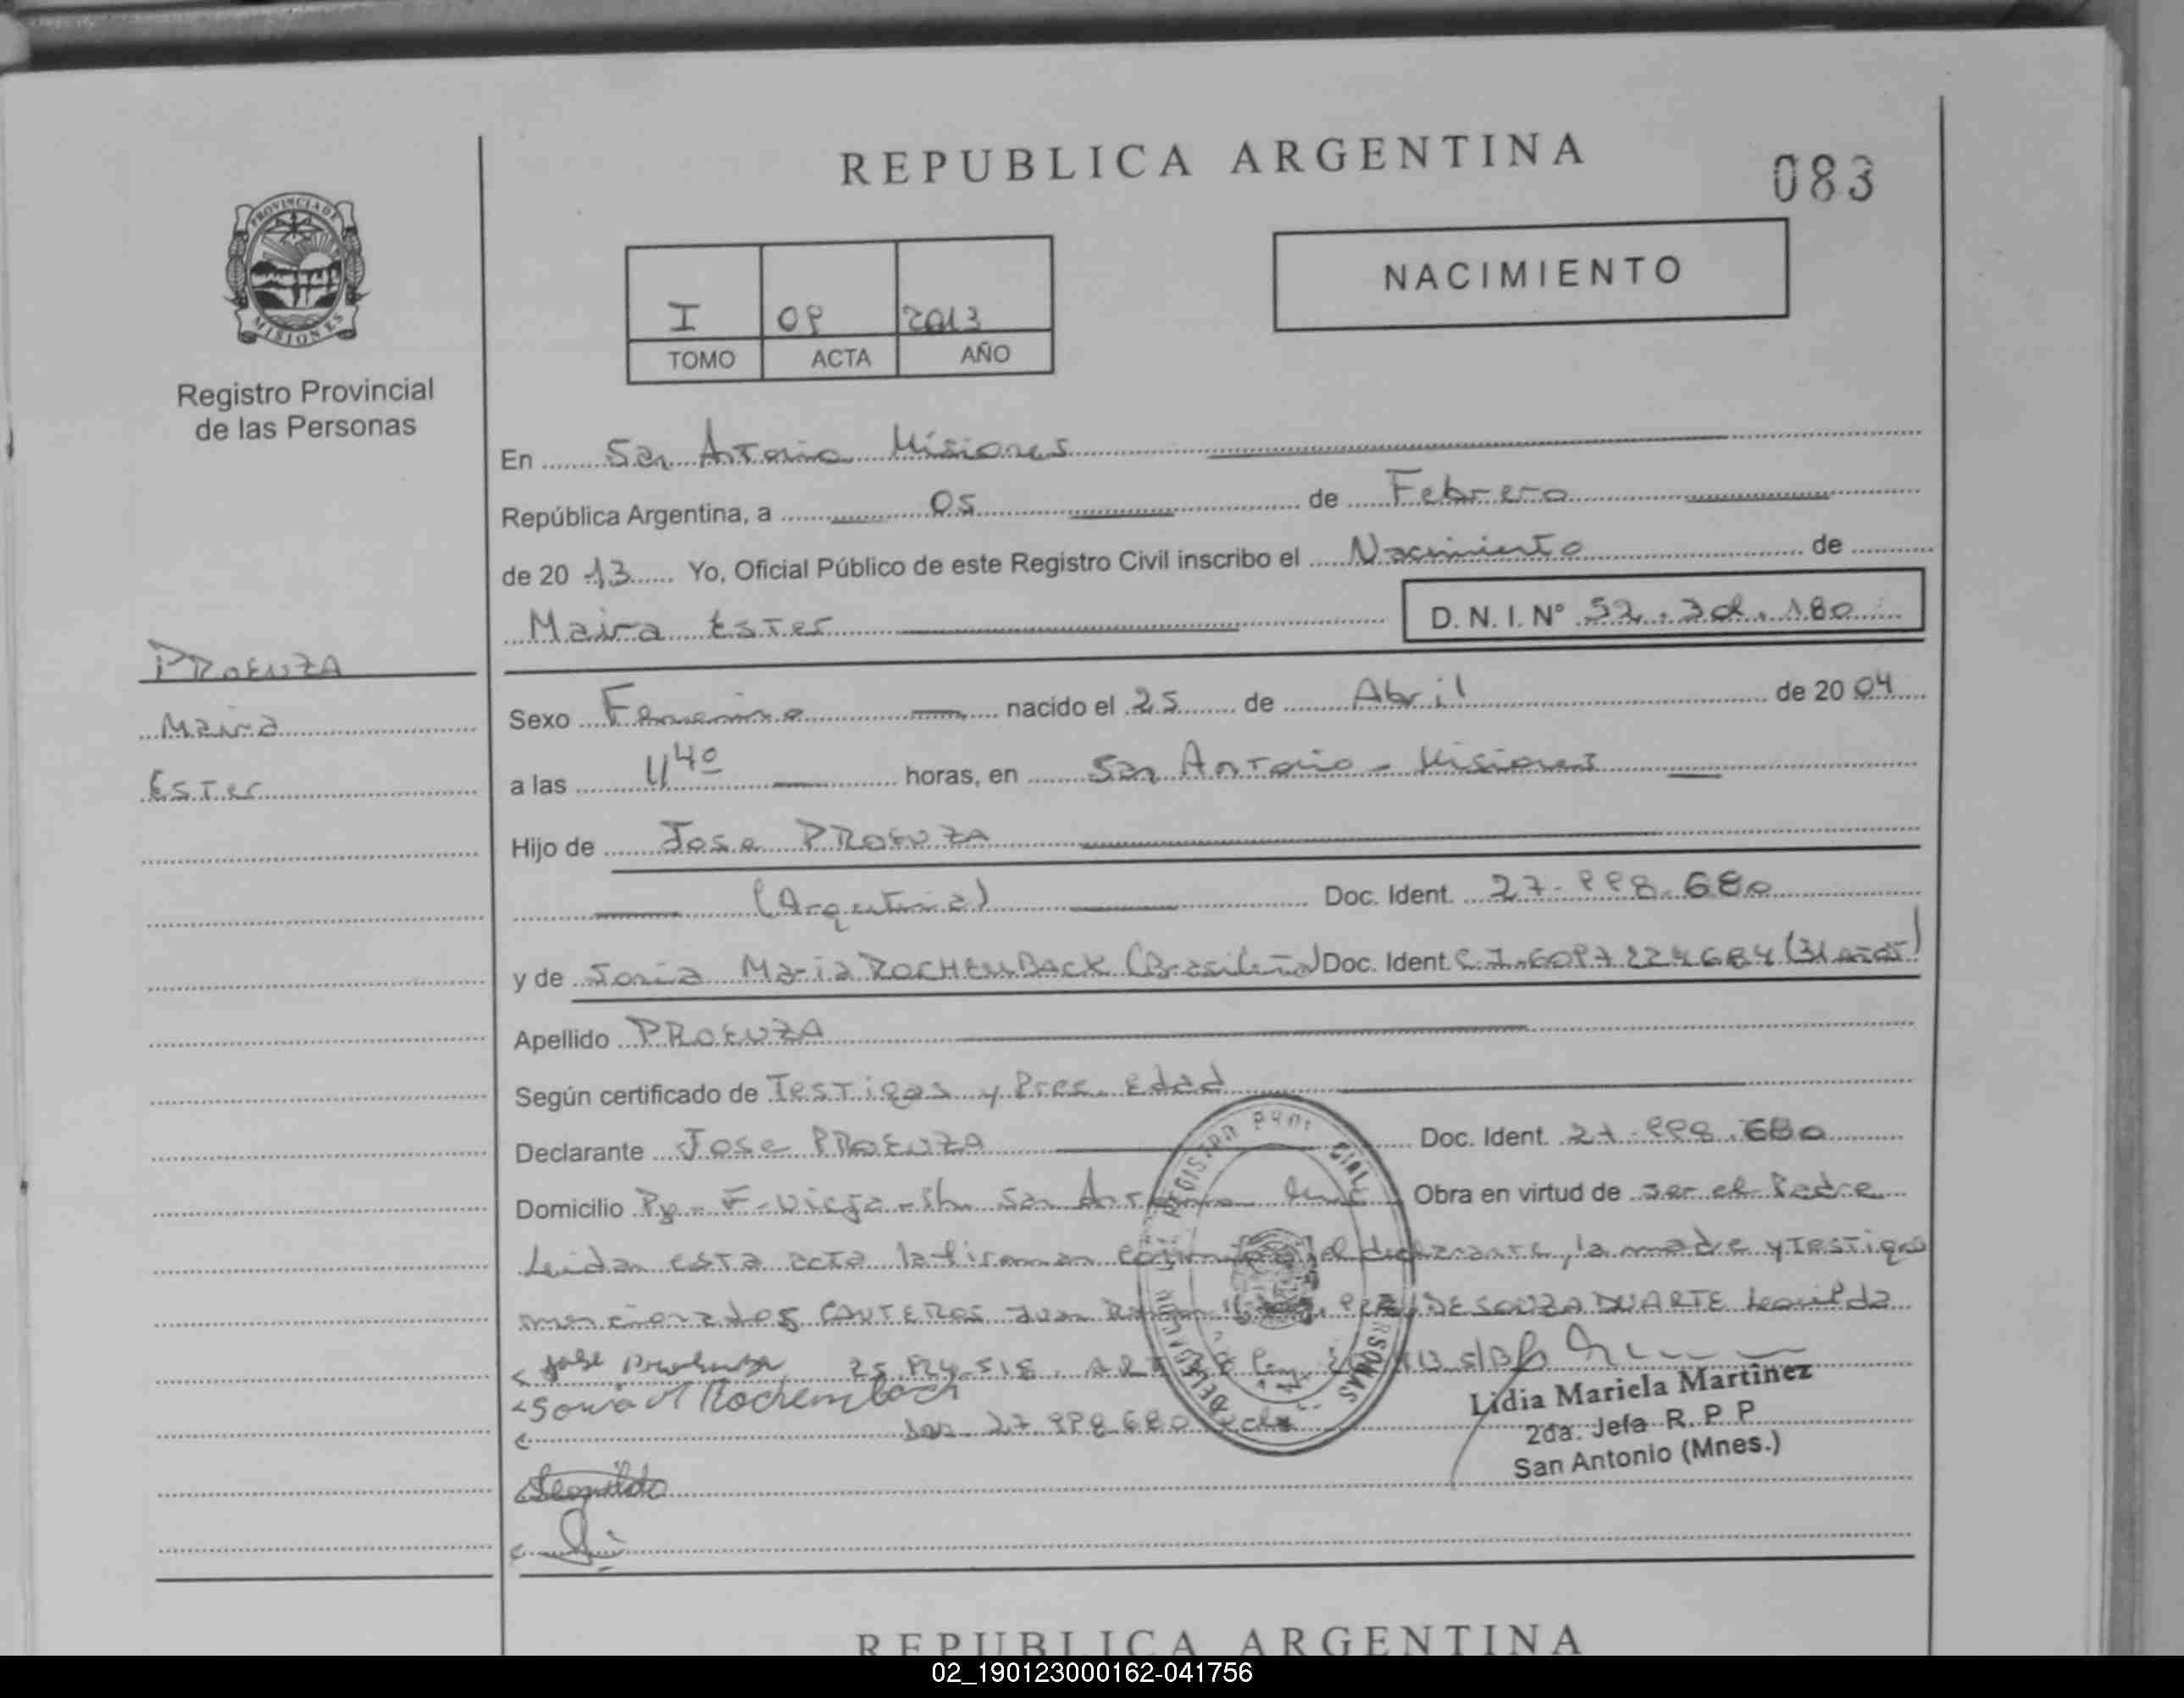 REPUBLICA ARGENTINA
083
PROVINCIA DE
MISIONES
Registro Provincial
de las Personas
I 09 2013
TOMO ACTA AÑO
NACIMIENTO
En San Antonio Misiones
República Argentina, a 05 de Febrero
de 20 13 Yo, Oficial Público de este Registro Civil inscribo el Nacimiento de
Maira Ester D. N. I. N° 52.
PROENZA
Maira
Ester
Sexo Femenino nacido el 25 de Abril de 20 04
a las 11 40 horas, en San Antonio - Misiones
Hijo de Jose PROENZA
(Argentina) Doc. Ident. 27.998.680
y de Sonia Maria ROCHEMBACK (Brasileña) Doc. Ident. (31 años)
Apellido PROENZA
Según certificado de Testigos y Pres. Edad
Declarante Jose PROENZA Doc. Ident. 27.998.680
Domicilio San Antonio Obra en virtud de ser el Padre
Leida esta acta la firman el declarante, la madre y Testigos
mencionados Juan DE SOUZA DUARTE Leonilda
Jose
Sonia M Rochemback
27.998.680
Lidia Mariela Martinez
2da. Jefa R. P. P
San Antonio (Mnes.)
REPUBLICA ARGENTINA
02_190123000162-041756